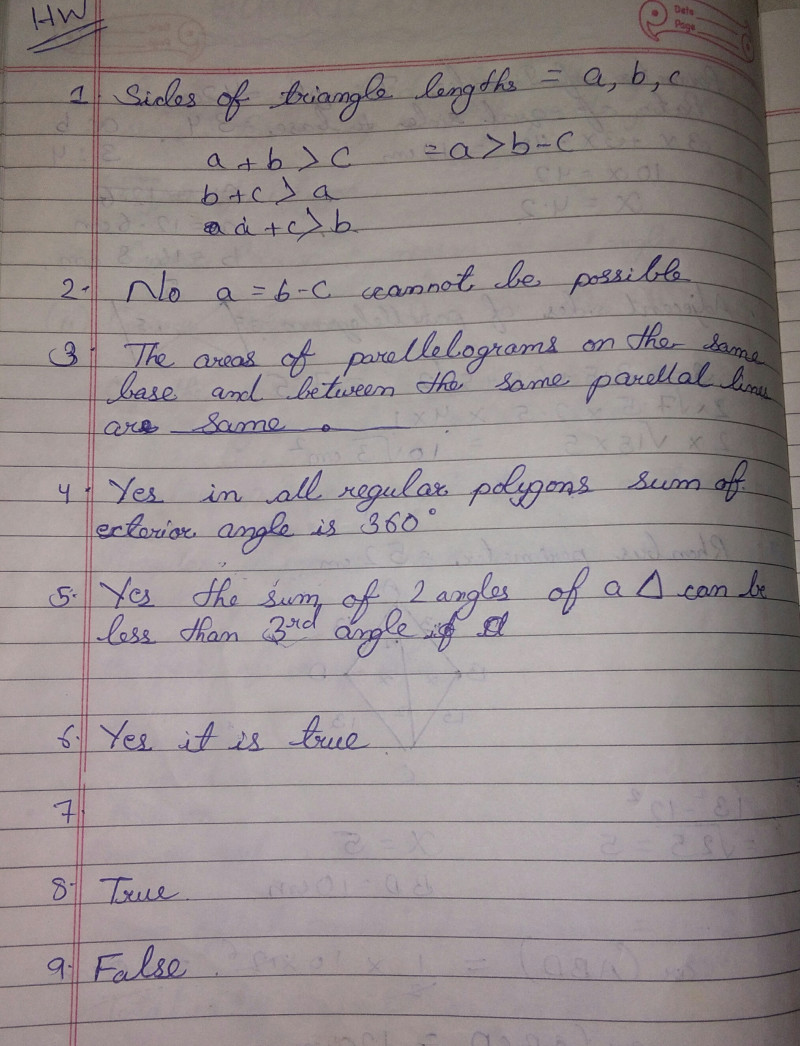 HW
Date
Page
1. Sides of triangle lengths = a, b, c
a + b > c = a > b - c
b + c > a
a + c > b
2. No a = b - c cannot be possible
3. The areas of parellelograms on the same
base and between the same parellal lines
are same.
4. Yes in all regular polygons sum of
exterior angle is 360°
5. Yes the sum of 2 angles of a △ can be
less than 3rd angle if
6. Yes it is true
7.
8. True.
9. False.